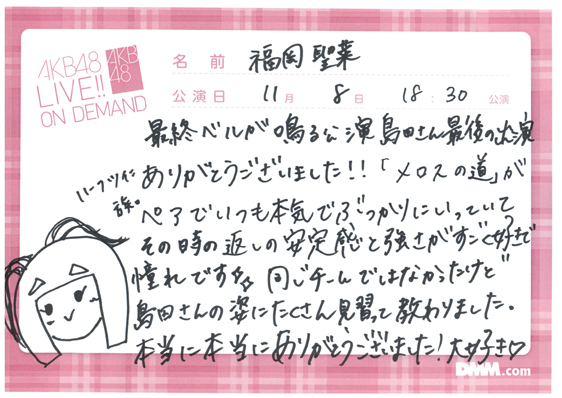 AKB48
LIVE!!
ON DEMAND
AKB
48
名前 福岡聖菜
公演日 11月 8日 18:30 公演
最終ベルが鳴る公演島田さん最後の出演
ありがとうございました!!「メロスの道」が
ハーフツイン
ペアでいつも本気でぶつかりにいっていて
その時の返しの安定感と強さがすごく好きで
憧れです 同じチームではなかったけど
島田さんの姿にたくさん見習って教わりました。
本当に本当にありがとうございました!大好き♡
DMM.com